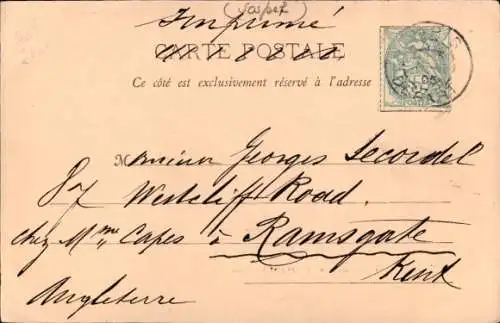 (Jaspet)
Imprimé
CARTE POSTALE
Ce côté est exclusivement réservé à l'adresse
Monsieur Georges Lecordel
87 Westcliff Road
chez Mme Capes à Ramsgate
Kent
Angleterre